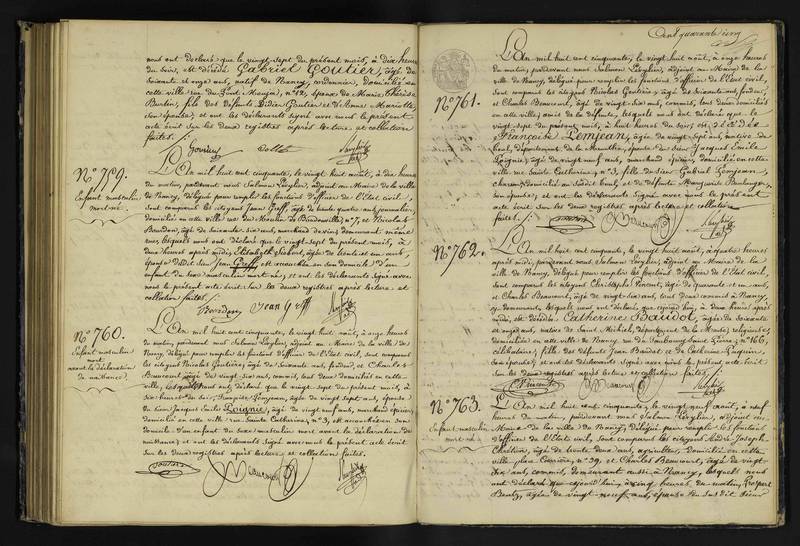 nous ont déclaré que le vingt sept du présent mois, à dix heures
du soir, est décédé Gabriel Goutier, âgé de
soixante et onze ans, natif de Nancy, cordonnier, domicilié en
cette ville rue du n° 12, époux de Marie Thérèse
fils des défunts Didier Goutier et d'Anne Mariotte,
son épouse; et ont les déclarants signé avec nous le présent
acte écrit sur les deux registres après lecture et collation
faites.
N° 759.
Enfant masculin
mort-né.
L'An mil huit cent cinquante, le vingt huit août, à dix heures
du matin, pardevant nous Salmon adjoint au Maire de la ville
de Nancy, délégué pour remplir les fonctions d'officier de l'Etat civil,
sont comparus les citoyens Jean Greff, âgé de trente quatre ans,
domicilié en cette ville rue du n° 7, et Nicolas
Bourdon, âgé de soixante six ans, marchand de vin, demeurant même
rue, lesquels nous ont déclaré que le vingt sept du présent mois, à
deux heures après midi, Elisabeth âgée de trente et un ans,
épouse dudit Jean Greff, est accouchée en son domicile d'un
enfant du sexe masculin mort-né; et ont les déclarants signé avec
nous le présent acte écrit sur les deux registres après lecture et
collation faites.
Bourdon Jean Greff
N° 760.
Enfant masculin
mort
avant la déclaration
de naissance.
L'An mil huit cent cinquante, le vingt huit août, à onze heures
du matin, pardevant nous Salmon adjoint au Maire de la ville de
Nancy, délégué pour remplir les fonctions d'officier de l'Etat civil, sont comparus
les citoyens Nicolas Goutière, âgé de soixante ans, et Charles
Beaucourt, âgé de vingt six ans, commis, tous deux domiciliés en cette
ville, lesquels nous ont déclaré que le vingt sept du présent mois, à
six heures du soir, Françoise Lemjean, âgée de vingt sept ans, épouse
du sieur Jacques Emile Loignie, âgé de vingt neuf ans, marchand épicier,
domicilié en cette ville rue Sainte Catherine, n° 3, est accouchée en son
domicile d'un enfant du sexe masculin mort avant la déclaration de
naissance; et ont les déclarants signé avec nous le présent acte écrit
sur les deux registres après lecture et collation faites.
Beaucourt
Cent quarante cinq
N° 761.
L'An mil huit cent cinquante, le vingt huit août, à onze heures
du matin, pardevant nous Salmon adjoint au Maire de la
ville de Nancy, délégué pour remplir les fonctions d'officier de l'Etat civil,
sont comparus les citoyens Nicolas Goutière, âgé de soixante ans,
et Charles Beaucourt, âgé de vingt six ans, commis, tous deux domiciliés
en cette ville, lesquels nous ont déclaré que le
vingt sept du présent mois, à huit heures du soir, est décédée
Françoise Lemjean, âgée de vingt sept ans, native de
département de la Meurthe, épouse du sieur Jacques Emile
Loignie, âgé de vingt neuf ans, marchand épicier, domicilié en cette
ville rue Sainte Catherine, n° 3, fille du sieur Gabriel Lemjean,
domicilié au et de défunte Marguerite
son épouse; et ont les déclarants signé avec nous le présent
acte écrit sur les deux registres après lecture et collation
faites.
Beaucourt
N° 762.
L'An mil huit cent cinquante, le vingt huit août, à quatre heures
après midi, pardevant nous Salmon adjoint au Maire de la
ville de Nancy, délégué pour remplir les fonctions d'officier de l'Etat civil,
sont comparus les citoyens Christophe âgé de quarante et un ans,
et Charles Beaucourt, âgé de vingt six ans, tous deux commis à Nancy,
y demeurant, lesquels nous ont déclaré que cejourd'hui, à deux heures après
midi, est décédée Catherine Baudot, âgée de soixante
et onze ans, native de Saint Mihiel, département de la Meuse, religieuse,
domiciliée en cette ville de Nancy rue du Faubourg Saint Pierre, n° 166,
célibataire, fille des défunts Jean Baudot et de Catherine
son épouse; et ont les déclarants signé avec nous le présent acte écrit
sur les deux registres après lecture et collation faites.
Beaucourt
N° 763.
Enfant masculin
mort-né.
L'An mil huit cent cinquante, le vingt neuf août, à neuf
heures du matin, pardevant nous Salmon adjoint au
Maire de la ville de Nancy, délégué pour remplir les fonctions
d'officier de l'Etat civil, sont comparus les citoyens Joseph
Chrétien, âgé de trente deux ans, domicilié en cette
ville place Carrière, n° 39, et Charles Beaucourt, âgé de vingt
six ans, commis, demeurant aussi à Nancy, lesquels nous
ont déclaré que cejourd'hui, à cinq heures du matin,
âgée de vingt neuf ans, épouse du susdit sieur